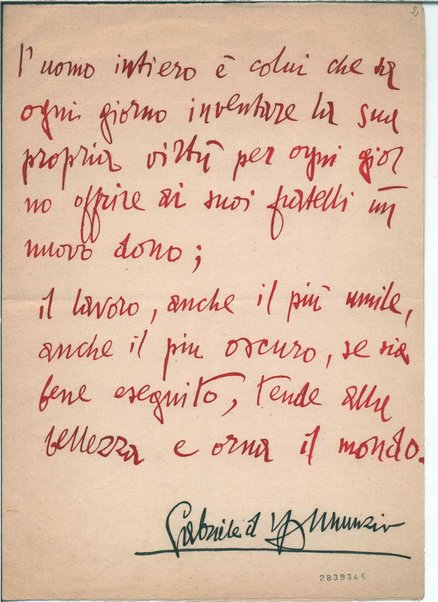 2
l'uomo intiero è colui che sa
ogni giorno inventare la sua
propria virtù per ogni gior
no offrire ai suoi fratelli un
nuovo dono;
il lavoro, anche il più umile,
anche il piu oscuro, se sia
bene eseguito, tende alla
bellezza e orna il mondo.
Gabriele d'Annunzio
2839345